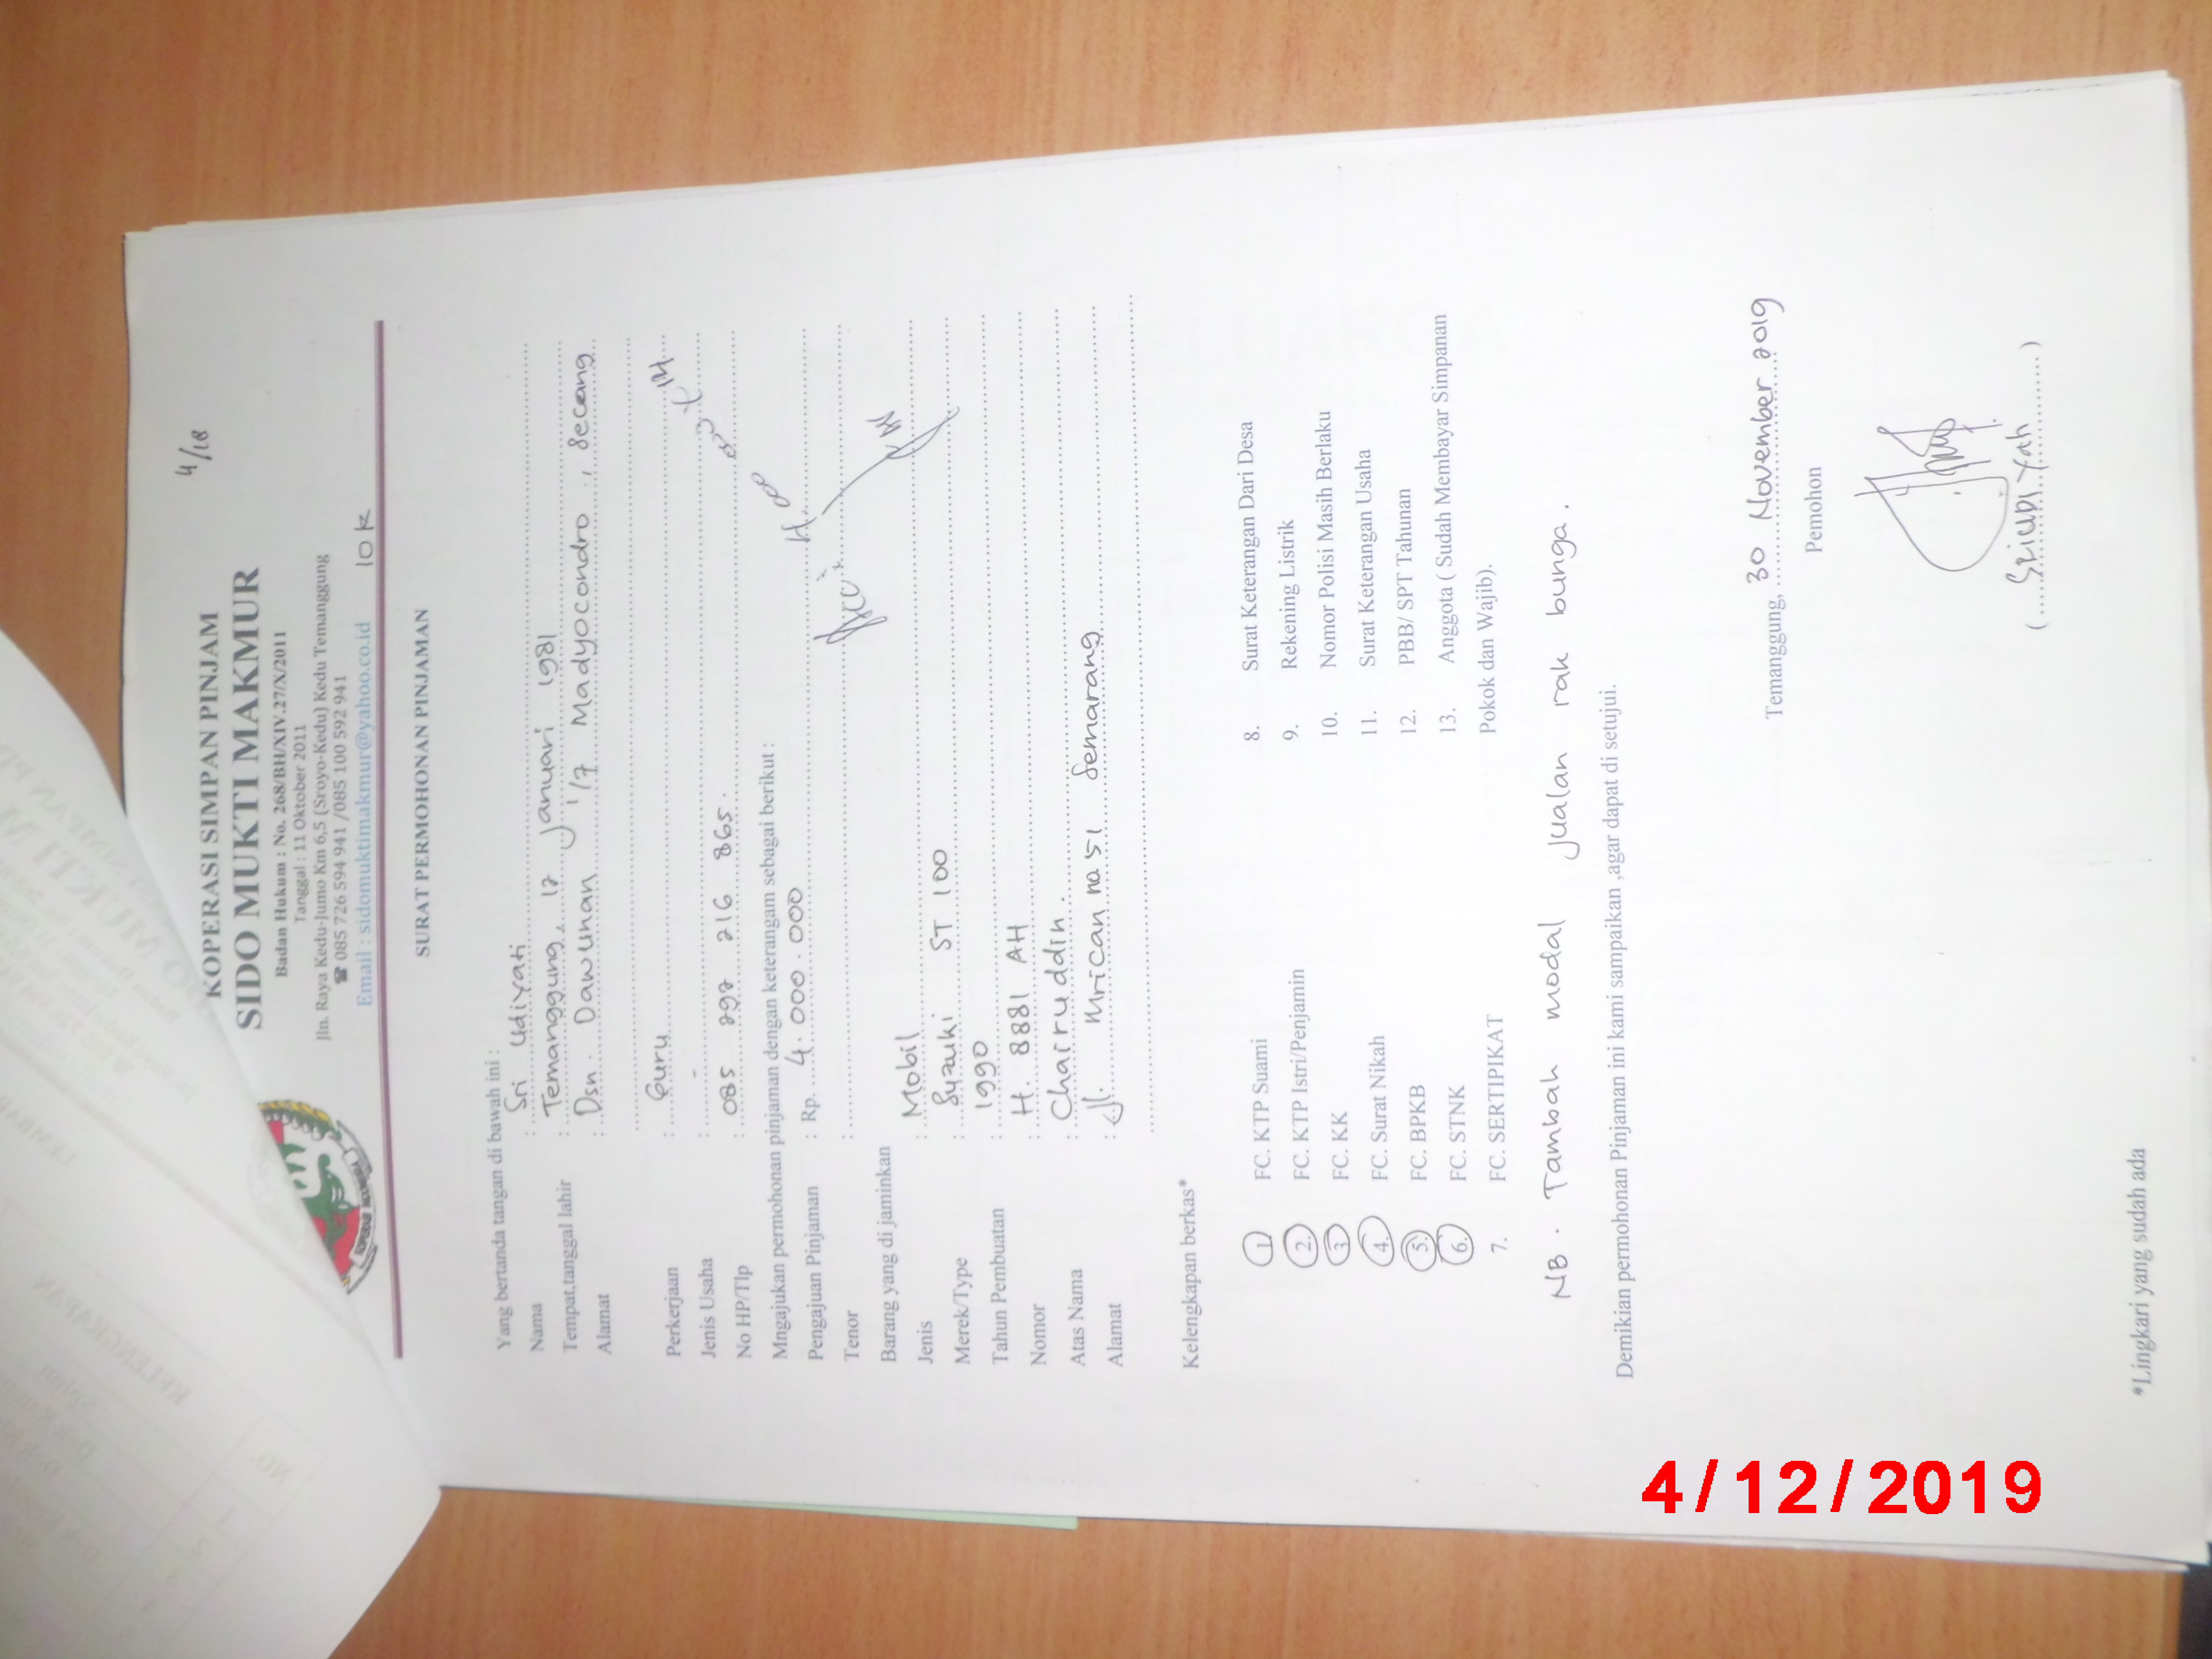 4/12
KOPERASI SIMPAN PINJAM
SIDO MUKTI MAKMUR
Badan Hukum : No. 268/BH/XIV.27/X/2011
Tanggal : 11 Oktober 2011
Jln. Raya Kedu-Jumo Km 6,5 (Sroyo-Kedu) Kedu Temanggung
☎ 085 726 594 941 /085 100 592 941
Email : sidomuktimakmur@yahoo.co.id 10 K
SURAT PERMOHONAN PINJAMAN
Yang bertanda tangan di bawah ini :
Nama : Sri Udiyati
Tempat,tanggal lahir : Temanggung, 12 Januari 1981
Alamat : Dsn. Dawunan 1/7 Madyocondro, Secang
Perkerjaan : Guru
Jenis Usaha :
No HP/Tlp : 085 292 216 865.
Mngajukan permohonan pinjaman dengan keterangam sebagai berikut :
Pengajuan Pinjaman : Rp. 4.000.000
Tenor :
Barang yang di jaminkan
Jenis : Mobil
Merek/Type : Suzuki ST 100
Tahun Pembuatan : 1990
Nomor : H. 8881 AH
Atas Nama : Chairuddin.
Alamat : Jl. Mrican no 51 Semarang
Kelengkapan berkas*
1 FC. KTP Suami
2. FC. KTP Istri/Penjamin
3 FC. KK
4. FC. Surat Nikah
5. FC. BPKB
6. FC. STNK
7. FC. SERTIPIKAT
8. Surat Keterangan Dari Desa
9. Rekening Listrik
10. Nomor Polisi Masih Berlaku
11. Surat Keterangan Usaha
12. PBB/ SPT Tahunan
13. Anggota ( Sudah Membayar Simpanan
Pokok dan Wajib).
NB. Tambah modal Jualan rak bunga.
Demikian permohonan Pinjaman ini kami sampaikan ,agar dapat di setujui.
Temanggung, 30 November 2019
Pemohon
*Lingkari yang sudah ada
4/12/2019
KELENGKAPAN
NO.